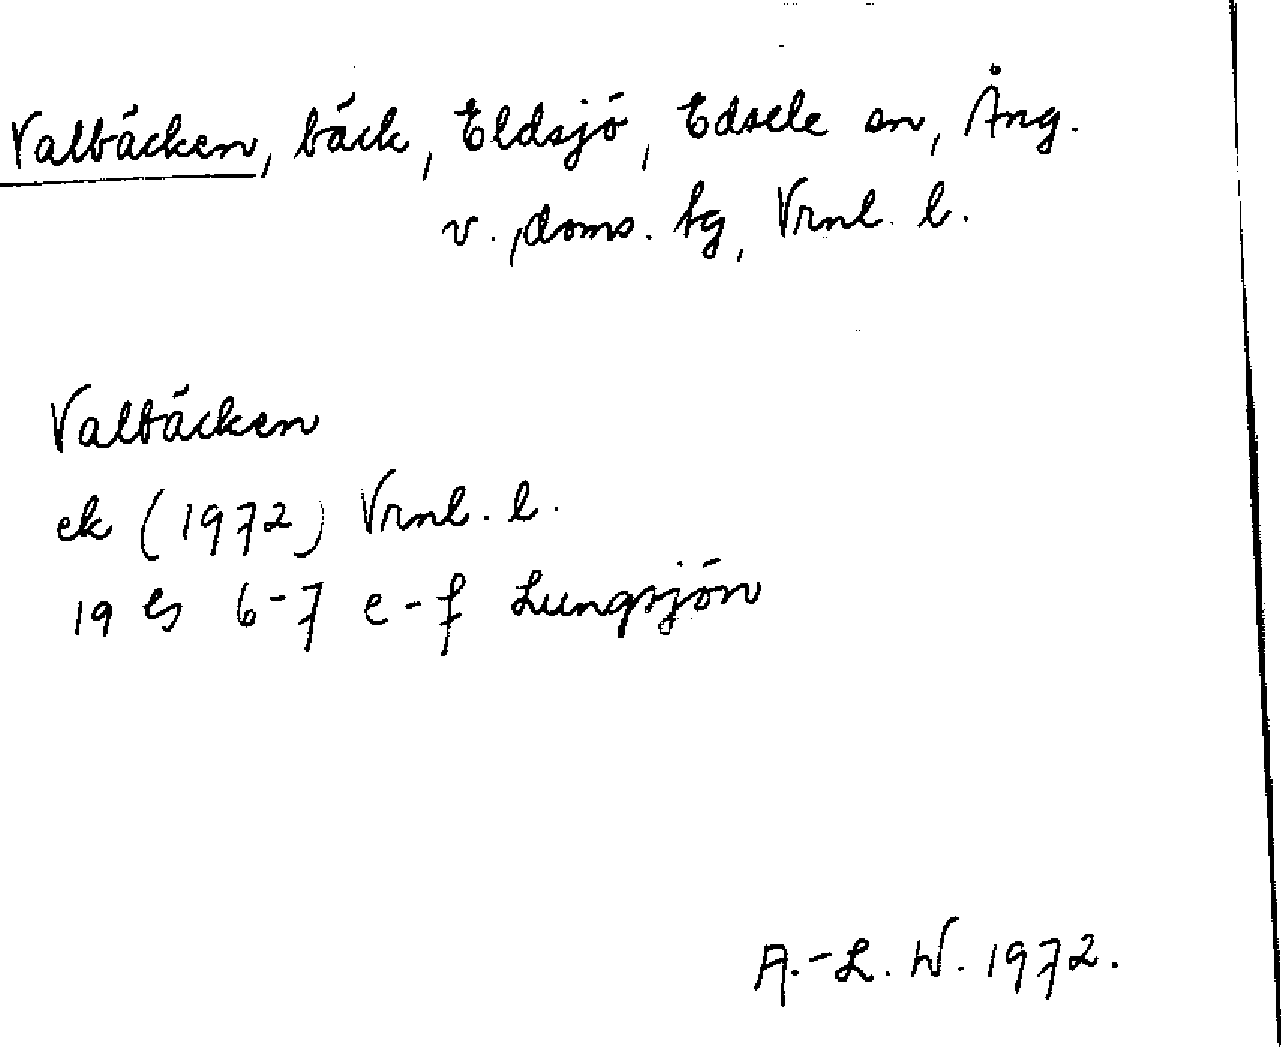 Valbäcken, bäck, Eldsjö, Edsele sn, Ång.
v., doms. tg, Vrnl. l.
Valbäcken
ek (1972) Vrnl. l.
19 G 6-7 e-f Lungsjön
A.-L. W. 1972.